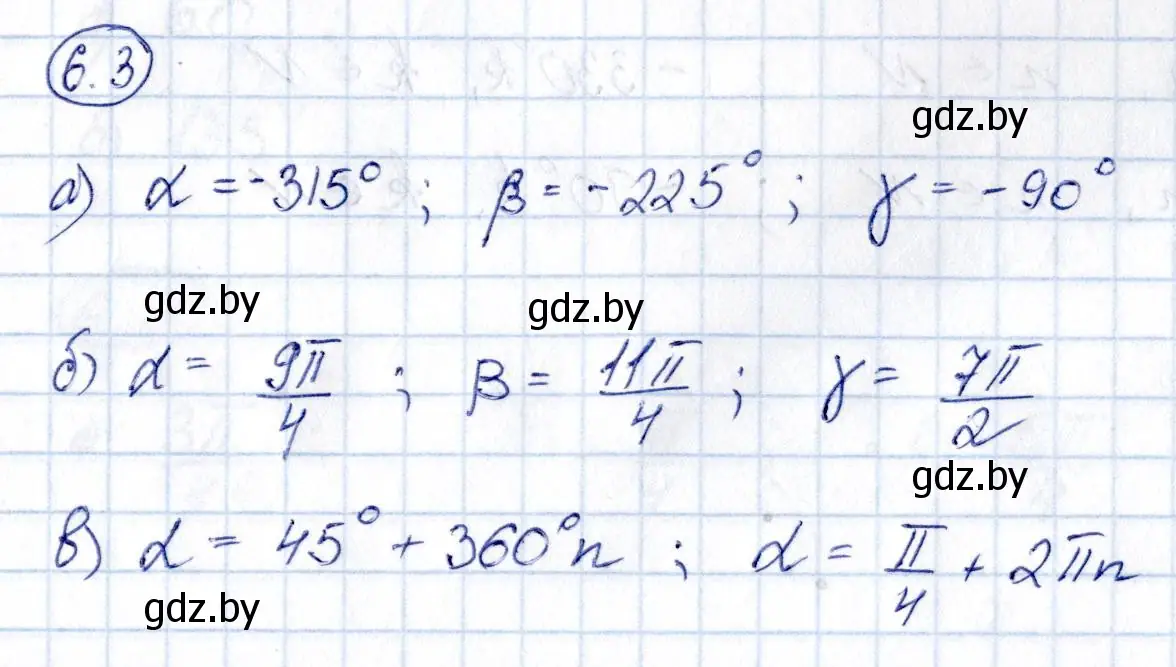 6.3
gdz.by
а) α = -315° ; β = -225° ; γ = -90°
gdz.by gdz.by
б) α = 9π/4 ; β = 11π/4 ; γ = 7π/2
gdz.by
в) α = 45° + 360°n ; α = π/4 + 2πn
gdz.by